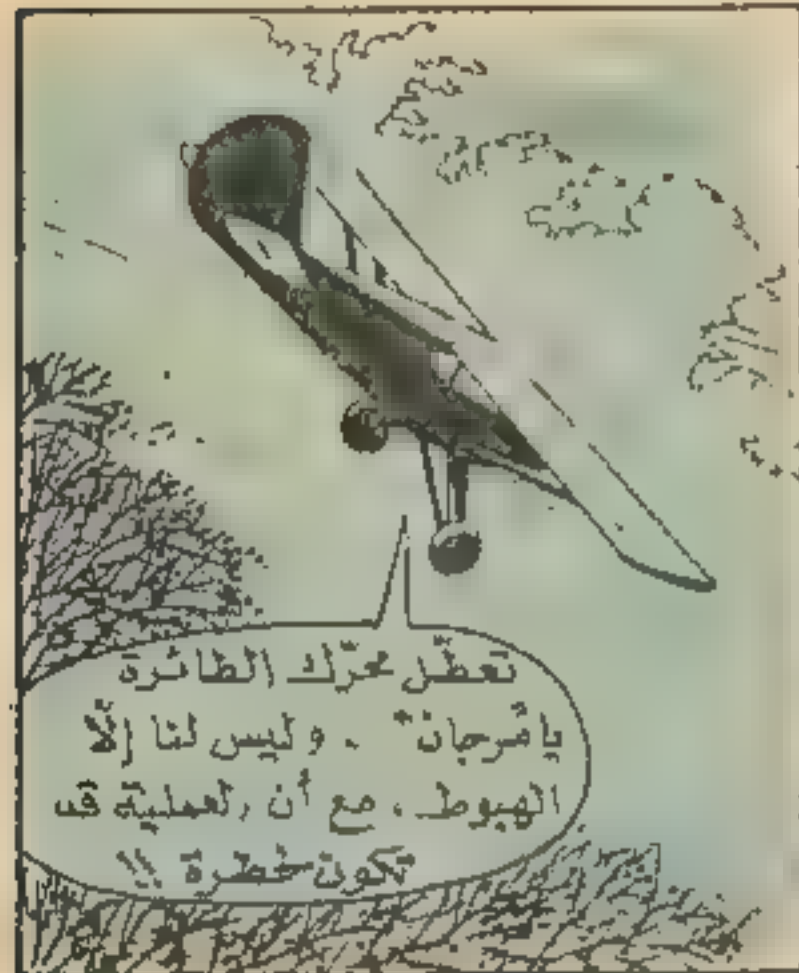 تعطّل محرّك الطائرة
يا مرجان" . وليس لنا إلّا
الهبوط ، مع أن العمليّة قد
تكون خطرة !!